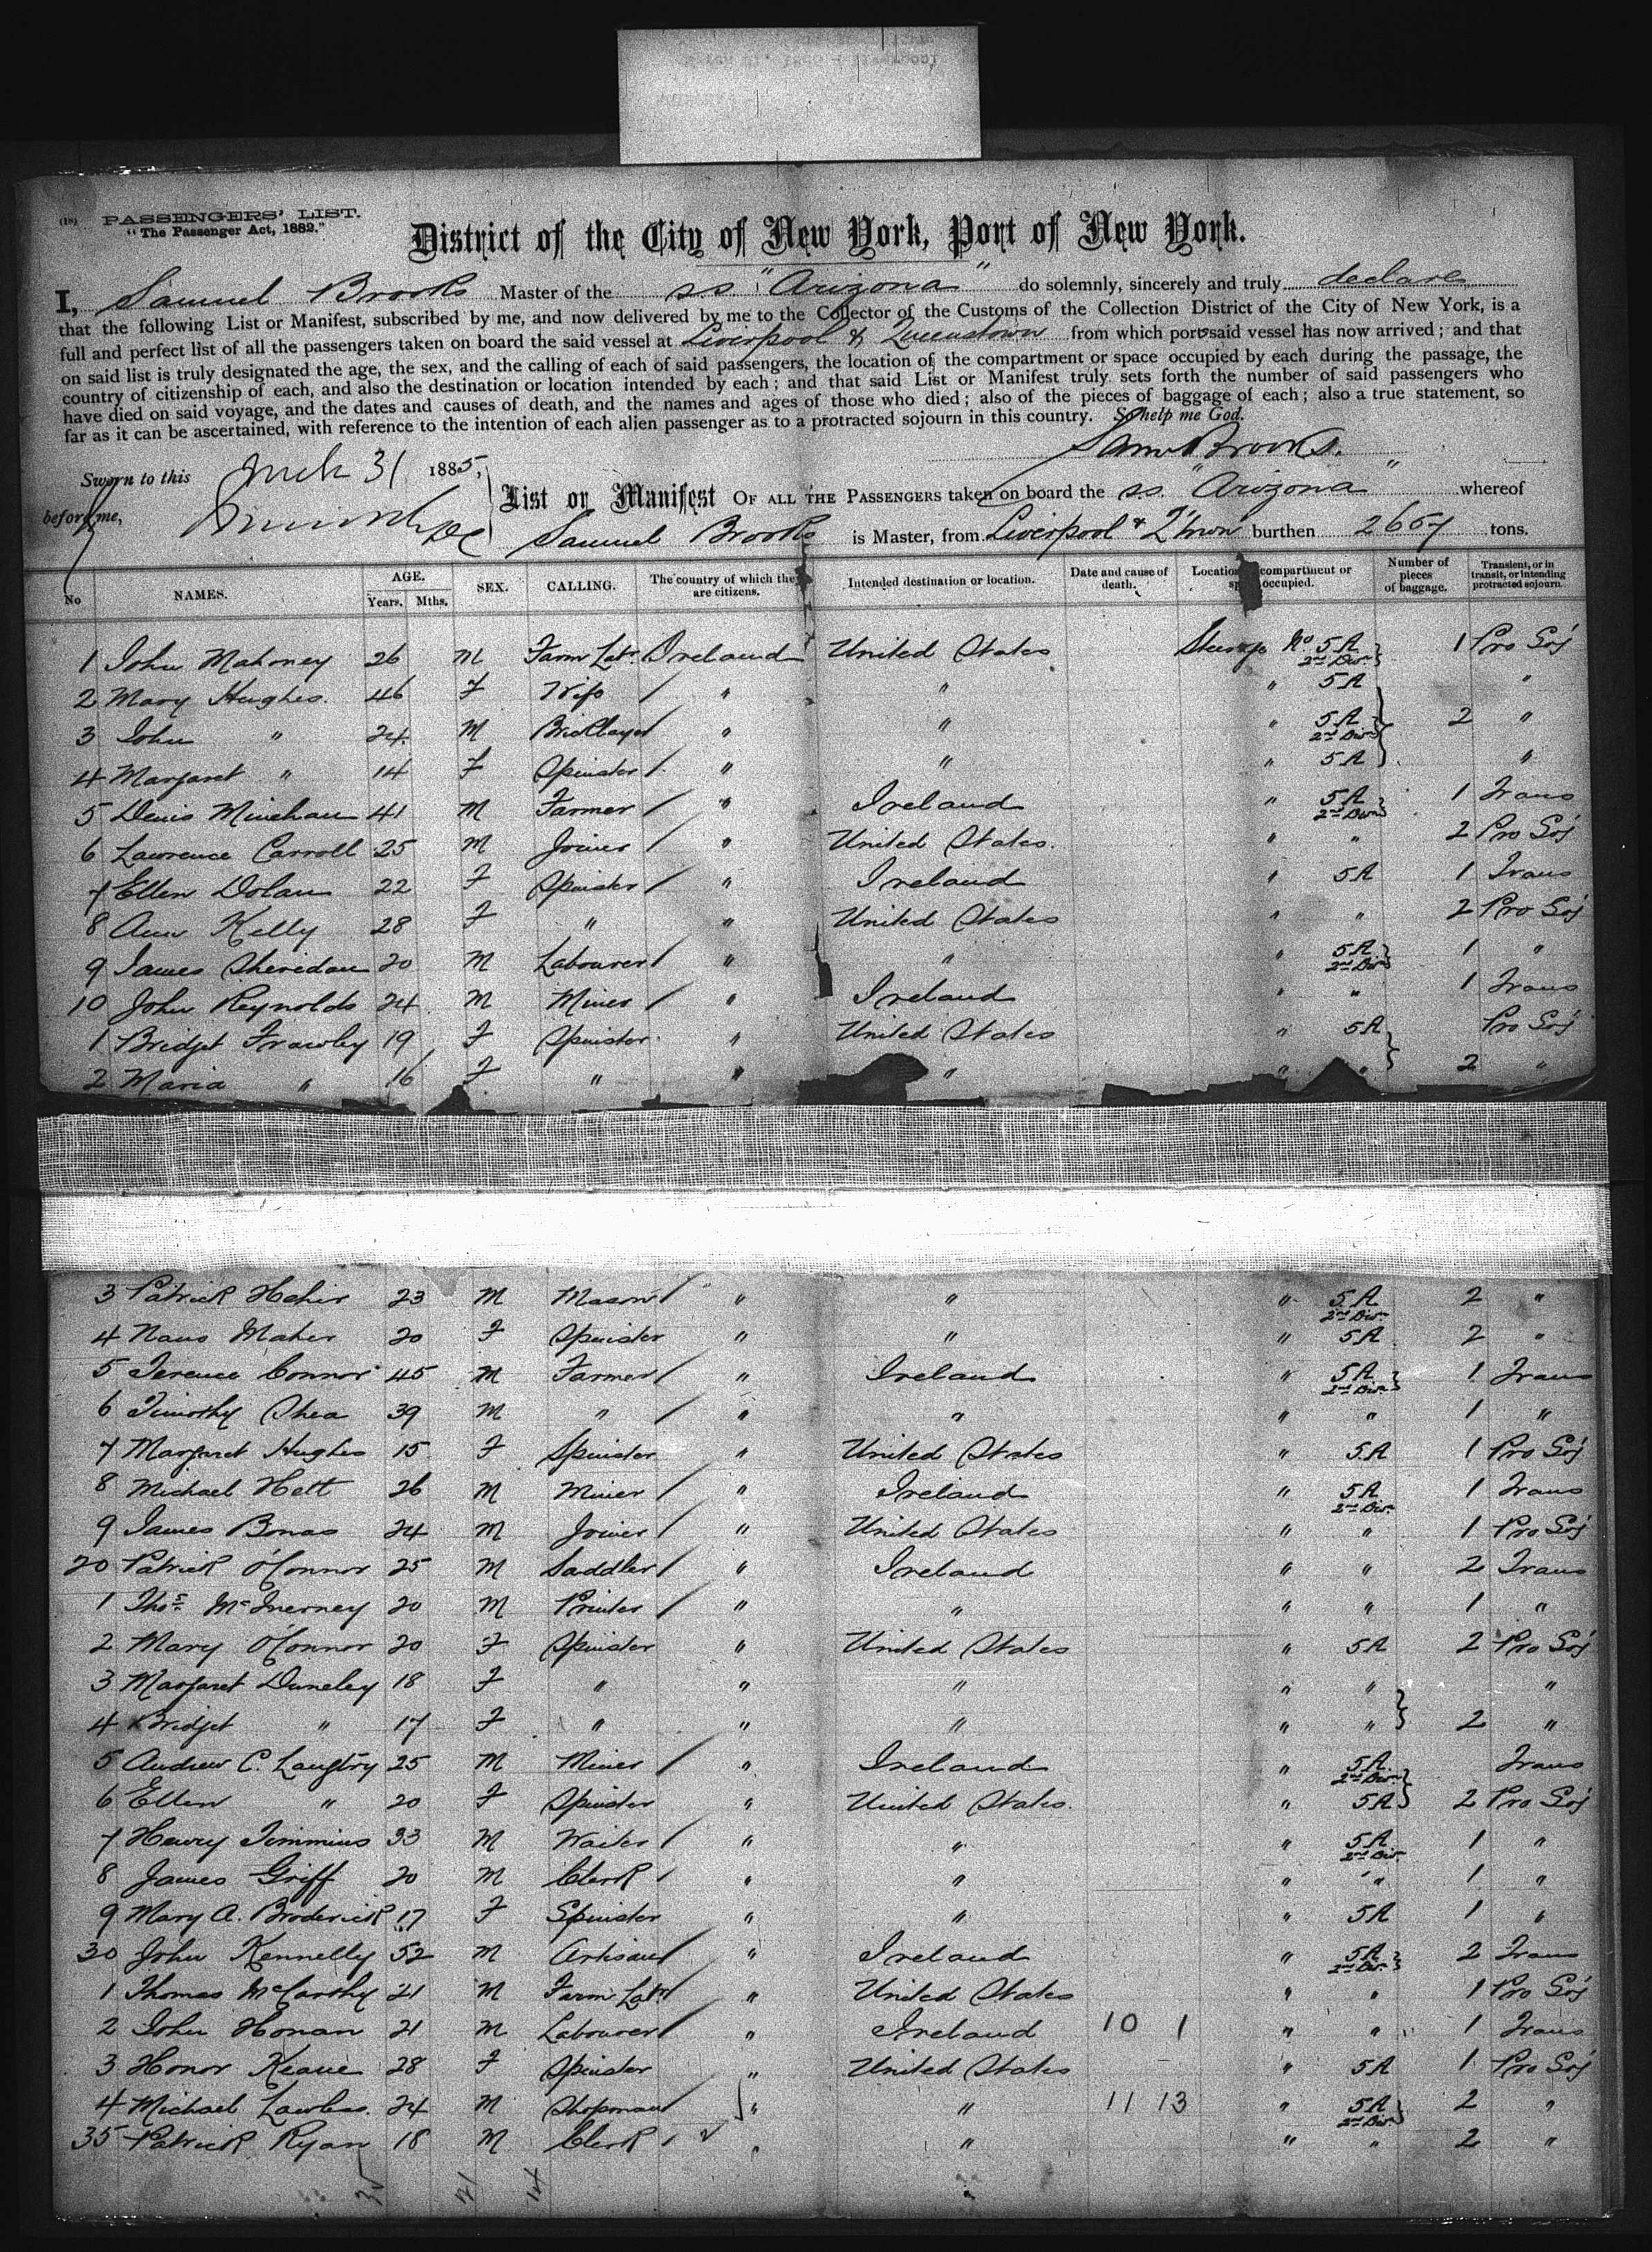 (18) PASSENGERS' LIST.
"The Passenger Act, 1882."
District of the City of New York, Port of New York.
I, Samuel Brooks Master of the s.s. "Arizona" do solemnly, sincerely and truly declare
that the following List or Manifest, subscribed by me, and now delivered by me to the Collector of the Customs of the Collection District of the City of New York, is a
full and perfect list of all the passengers taken on board the said vessel at Liverpool & Queenstown from which port said vessel has now arrived; and that
on said list is truly designated the age, the sex, and the calling of each of said passengers, the location of the compartment or space occupied by each during the passage, the
country of citizenship of each, and also the destination or location intended by each; and that said List or Manifest truly sets forth the number of said passengers who
have died on said voyage, and the dates and causes of death, and the names and ages of those who died; also of the pieces of baggage of each; also a true statement, so
far as it can be ascertained, with reference to the intention of each alien passenger as to a protracted sojourn in this country. So help me God.
Saml Brooks.
Sworn to this Mch 31 1885,
before me,
List or Manifest OF ALL THE PASSENGERS taken on board the s.s. "Arizona" whereof
Samuel Brooks is Master, from Liverpool & Q'town burthen 2657 tons.
No NAMES. AGE. Years. Mths. SEX. CALLING. The country of which they are citizens. Intended destination or location. Date and cause of death. Location compartment or occupied. Number of pieces of baggage. Transient, or in transit, or intending protracted sojourn.
1 John Mahoney 26 M Farm Labr. Ireland United States Steerage No 5A 2nd Divn 1 Pro Soj
2 Mary Hughes. 46 F Wife / " " " 5A "
3 John " 24 M Bricklayer / " " " 5A 2nd Divn 2 "
4 Margaret " 14 F Spinster / " " " 5A "
5 Denis Minehan 41 M Farmer / " Ireland " 5A 2nd Divn 1 Trans
6 Lawrence Carroll 25 M Joiner / " United States. " " 2 Pro Soj
7 Ellen Dolan 22 F Spinster / " Ireland " 5A 1 Trans
8 Ann Kelly 28 F " " United States " " 2 Pro Soj
9 James Sheridan 20 M Labourer / " " " 5A 2nd Divn 1 "
10 John Reynolds 24 M Miner / " Ireland " " 1 Trans
1 Bridget Frawley 19 F Spinster " United States " 5A Pro Soj
2 Maria " 16 F " " " " " 2 "
3 Patrick Hehir 23 M Mason / " " " 5A 2nd Divn 2 "
4 Nano Maher 20 F Spinster " " " 5A 2 "
5 Terence Connor 45 M Farmer / " Ireland " 5A 2nd Divn 1 Trans
6 Timothy Shea 39 M " / " " " " 1 "
7 Margaret Hughes 15 F Spinster " United States " 5A 1 Pro Soj
8 Michael Hett 26 M Miner / " Ireland " 5A 2nd Divn 1 Trans
9 James Bonas 24 M Joiner / " United States " " 1 Pro Soj
20 Patrick O'Connor 25 M Saddler / " Ireland " " 2 Trans
1 Thos McInerney 20 M Printer / " " " " 1 "
2 Mary O'Connor 20 F Spinster " United States " 5A 2 Pro Soj
3 Margaret Duneley 18 F " " " " " "
4 Bridget " 17 F " " " " " 2 "
5 Andrew C. Langtry 25 M Miner / " Ireland " 5A 2nd Divn Trans
6 Ellen " 20 F Spinster " United States. " 5A 2 Pro Soj
7 Henry Timmins 33 M Waiter / " " " 5A 2nd Divn 1 "
8 James Griff 20 M Clerk / " " " " 1 "
9 Mary A. Broderick 17 F Spinster " " " 5A 1 "
30 John Kennelly 52 M Artisan / " Ireland " 5A 2nd Divn 2 Trans
1 Thomas McCarthy 21 M Farm Labr / " United States " " 1 Pro Soj
2 John Honan 21 M Labourer / " Ireland 10 1 " " 1 Trans
3 Honor Keane 28 F Spinster " United States " 5A 1 Pro Soj
4 Michael Lawless. 24 M Shopman / " " 11 13 " 5A 2nd Divn 2 "
35 Patrick Ryan 18 M Clerk / " " " " 2 "
21 14